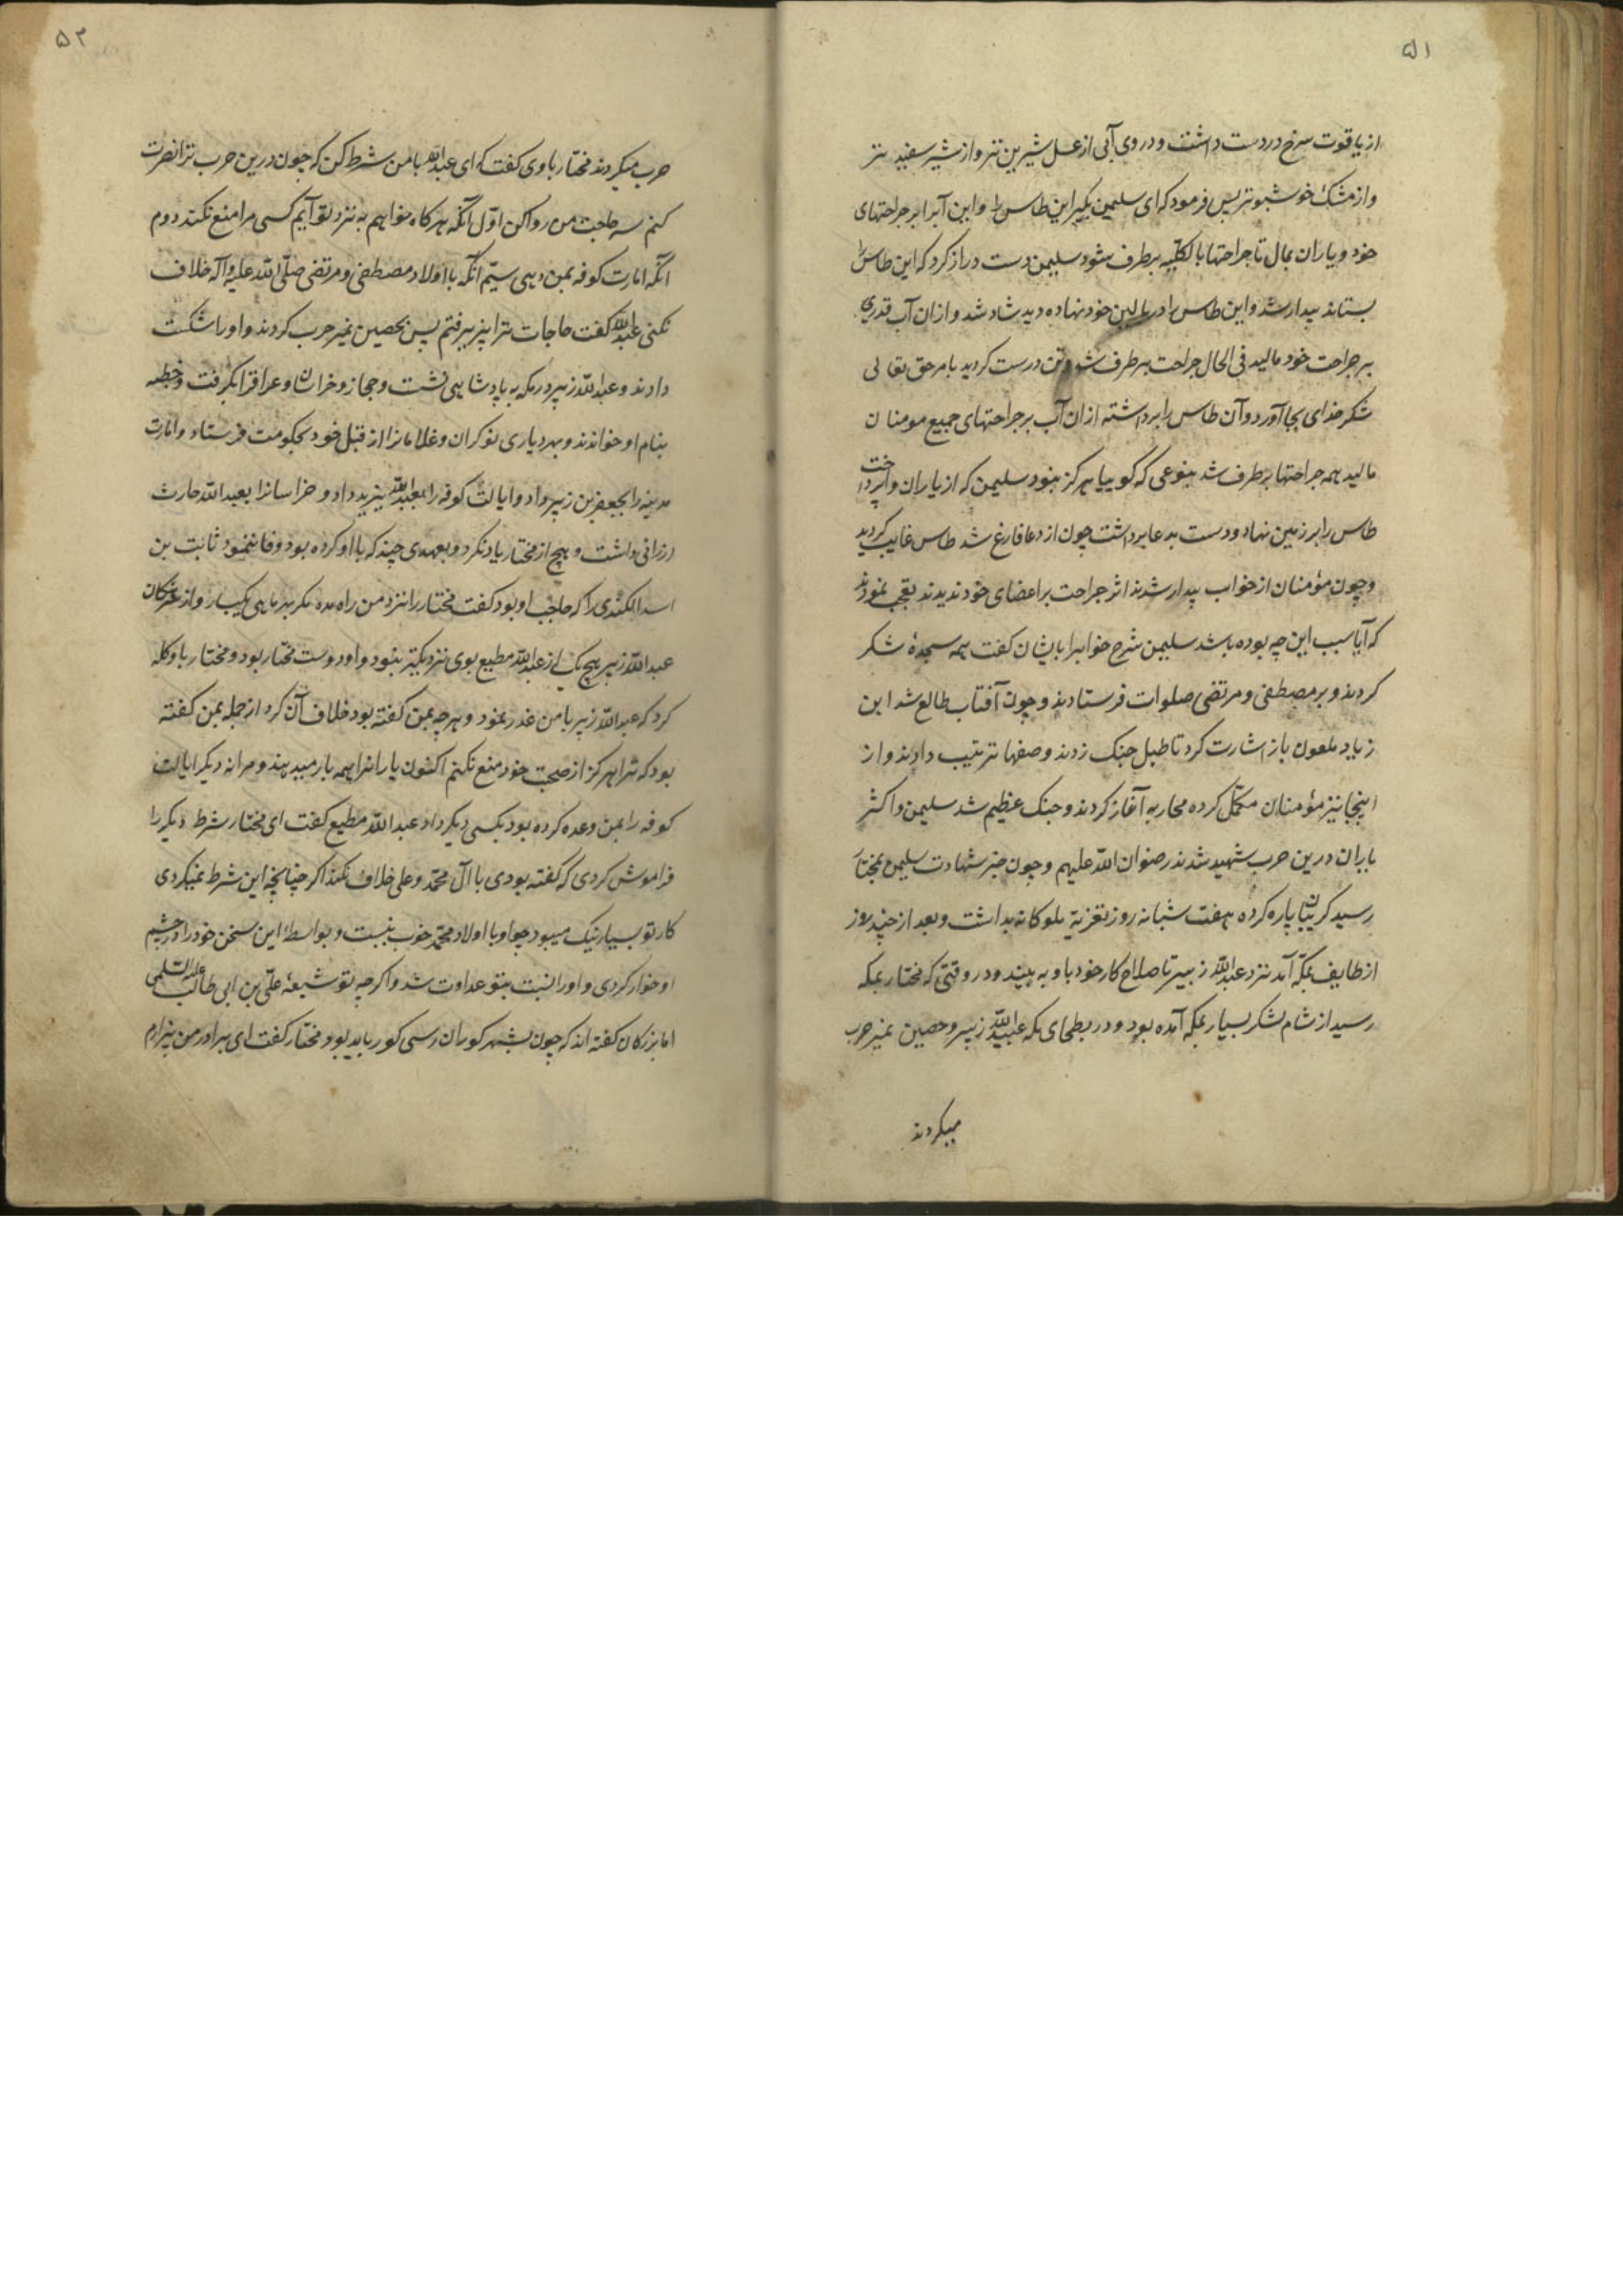 ۵۱
از یاقوت سرخ در دست داشت و در وی آبی از عسل شیرین تر و از شیر سفید تر
و از مشک خوشبوتر پس فرمود که ای سلیمن بگیر این طاس را و این آبرا بر جراحتهای
خود و یاران بمال تا جراحتها بالکلیه برطرف شود سلیمن دست دراز کرد که این طاس را
بستاند بیدار شد و این طاس را در بالین خود نهاده دید شاد شد و ازان آب قدری
بر جراحت خود مالید فی الحال جراحت برطرف شد و تن درست کردید بامر حق تعالی
شکر خدای بجا آورد و آن طاس را برداشته ازان آب بر جراحتهای جمیع مومنان
مالید همه جراحتها برطرف شد بنوعی که کوییا هرکز نبود سلیمن که از یاران واپرداخت
طاس را بر زمین نهاد و دست بدعا برداشت چون از دعا فارغ شد طاس غایب کردید
و چون مؤمنان از خواب بیدار شدند اثر جراحت بر اعضای خود ندیدند تعجب نمودند
که آیا سبب این چه بوده باشد سلیمن شرح خوابرا بایشان کفت همه سجدهٔ شکر
کردند و بر مصطفی و مرتضی صلوات فرستادند و چون آفتاب طالع شد ابن
زیاد ملعون باز اشارت کرد تا طبل جنک زدند و صفها ترتیب دادند و از
اینجا نیز مؤمنان مکمّل کرده محاربه آغاز کردند و جنک عظیم شد سلیمن و اکثر
یاران درین حرب شهید شدند رضوان الله علیهم و چون خبر شهادت سلیمن بمختار
رسید کریبان پاره کرده هفت شبانه روز تعزیهٔ ملوکانه بداشت و بعد از چند روز
از طایف بمکّه آمد نزد عبدالله زبیر تا صلاح کار خود با او به بیند و در وقتی که مختار بمکه
رسید از شام لشکر بسیار بمکه آمده بود و در بطحای مکه عبدالله زبیر و حصین نمیر حرب
میکردند
۵۲
حرب میکردند مختار با وی کفت که ای عبدالله با من شرط کن که چون درین حرب ترا نصرت
کنم سه حاجت من روا کن اوّل آنکه هرکاه خواهم به نزد تو آیم کسی مرا منع نکند دوم
آنکه امارت کوفه بمن دهی سیّم آنکه با اولاد مصطفی و مرتضی صلّی الله علیه وآله خلاف
نکنی عبدالله کفت حاجات ترا پذیرفتم پس بحصین نمیر حرب کردند و او را شکست
دادند و عبدالله زبیر در مکه به پادشاهی نشست و حجاز و خراسان و عراقرا بکرفت و خطبه
بنام او خواندند و بهر دیاری نوکران و غلامانرا از قبل خود بحکومت فرستاد و امارت
مدینه را بجعفر بن زبیر داد و ایالت کوفه را بعبدالله یزید داد و خراسانرا بعبدالله حارث
ارزانی داشت و هیچ از مختار یاد نکرد و بعهدی چند که با او کرده بود وفا ننمود ثابت بن
اسد الکندی را که حاجب او بود کفت مختار را نزد من راه مده مکر بهر ماهی یکبار و از
عبدالله زبیر هیچ یک از عبدالله مطیع بوی نزدیکتر نبود و او دوست مختار بود و مختار با او کله
کرد که عبدالله زبیر با من غدر نمود و هرچه بمن کفته بود خلاف آن کرد از جمله بمن کفته
بود که ترا هرکز از صحبت خود منع نکنم اکنون یارانرا همه بار میدهند و مرا نه دیکر ایالت
کوفه را بمن وعده کرده بود بکسی دیکر داد عبدالله مطیع کفت ای مختار شرط دیکر را
فراموش کردی که کفته بودی با آل محمّد و علی خلاف نکند اکر چنانچه این شرط نمیکردی
کار تو بسیار نیک میبود چو او با اولاد محمّد خوب نیست و بواسطهٔ این سخن خود را در چشم
او خوار کردی و او را نسبت بتو عداوت شد و اکرچه تو شیعهٔ علی بن ابی طالب
اما بزرکان کفته اند که چون بشهر کوران رسی کور باید بود مختار کفت ای برادر من بیزارم